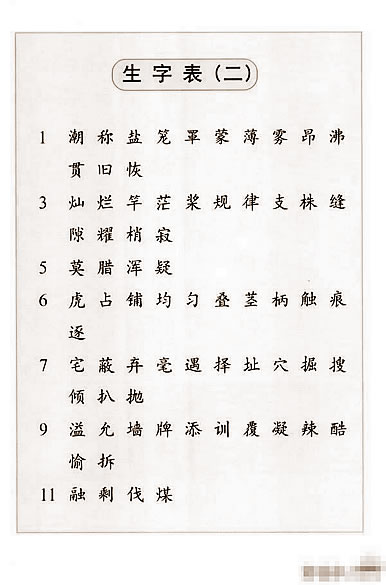 生字表(二)
1 潮 称 盐 笼 罩 蒙 薄 雾 昂 沸
贯 旧 恢
3 灿 烂 竿 茫 桨 规 律 支 株 缝
隙 耀 梢 寂
5 莫 腊 浑 疑
6 虎 占 铺 均 匀 叠 茎 柄 触 痕
逐
7 宅 蔽 弃 毫 遇 择 址 穴 掘 搜
倾 扒 抛
9 溢 允 墙 牌 添 训 覆 凝 辣 酷
愉 拆
11 融 剩 伐 煤